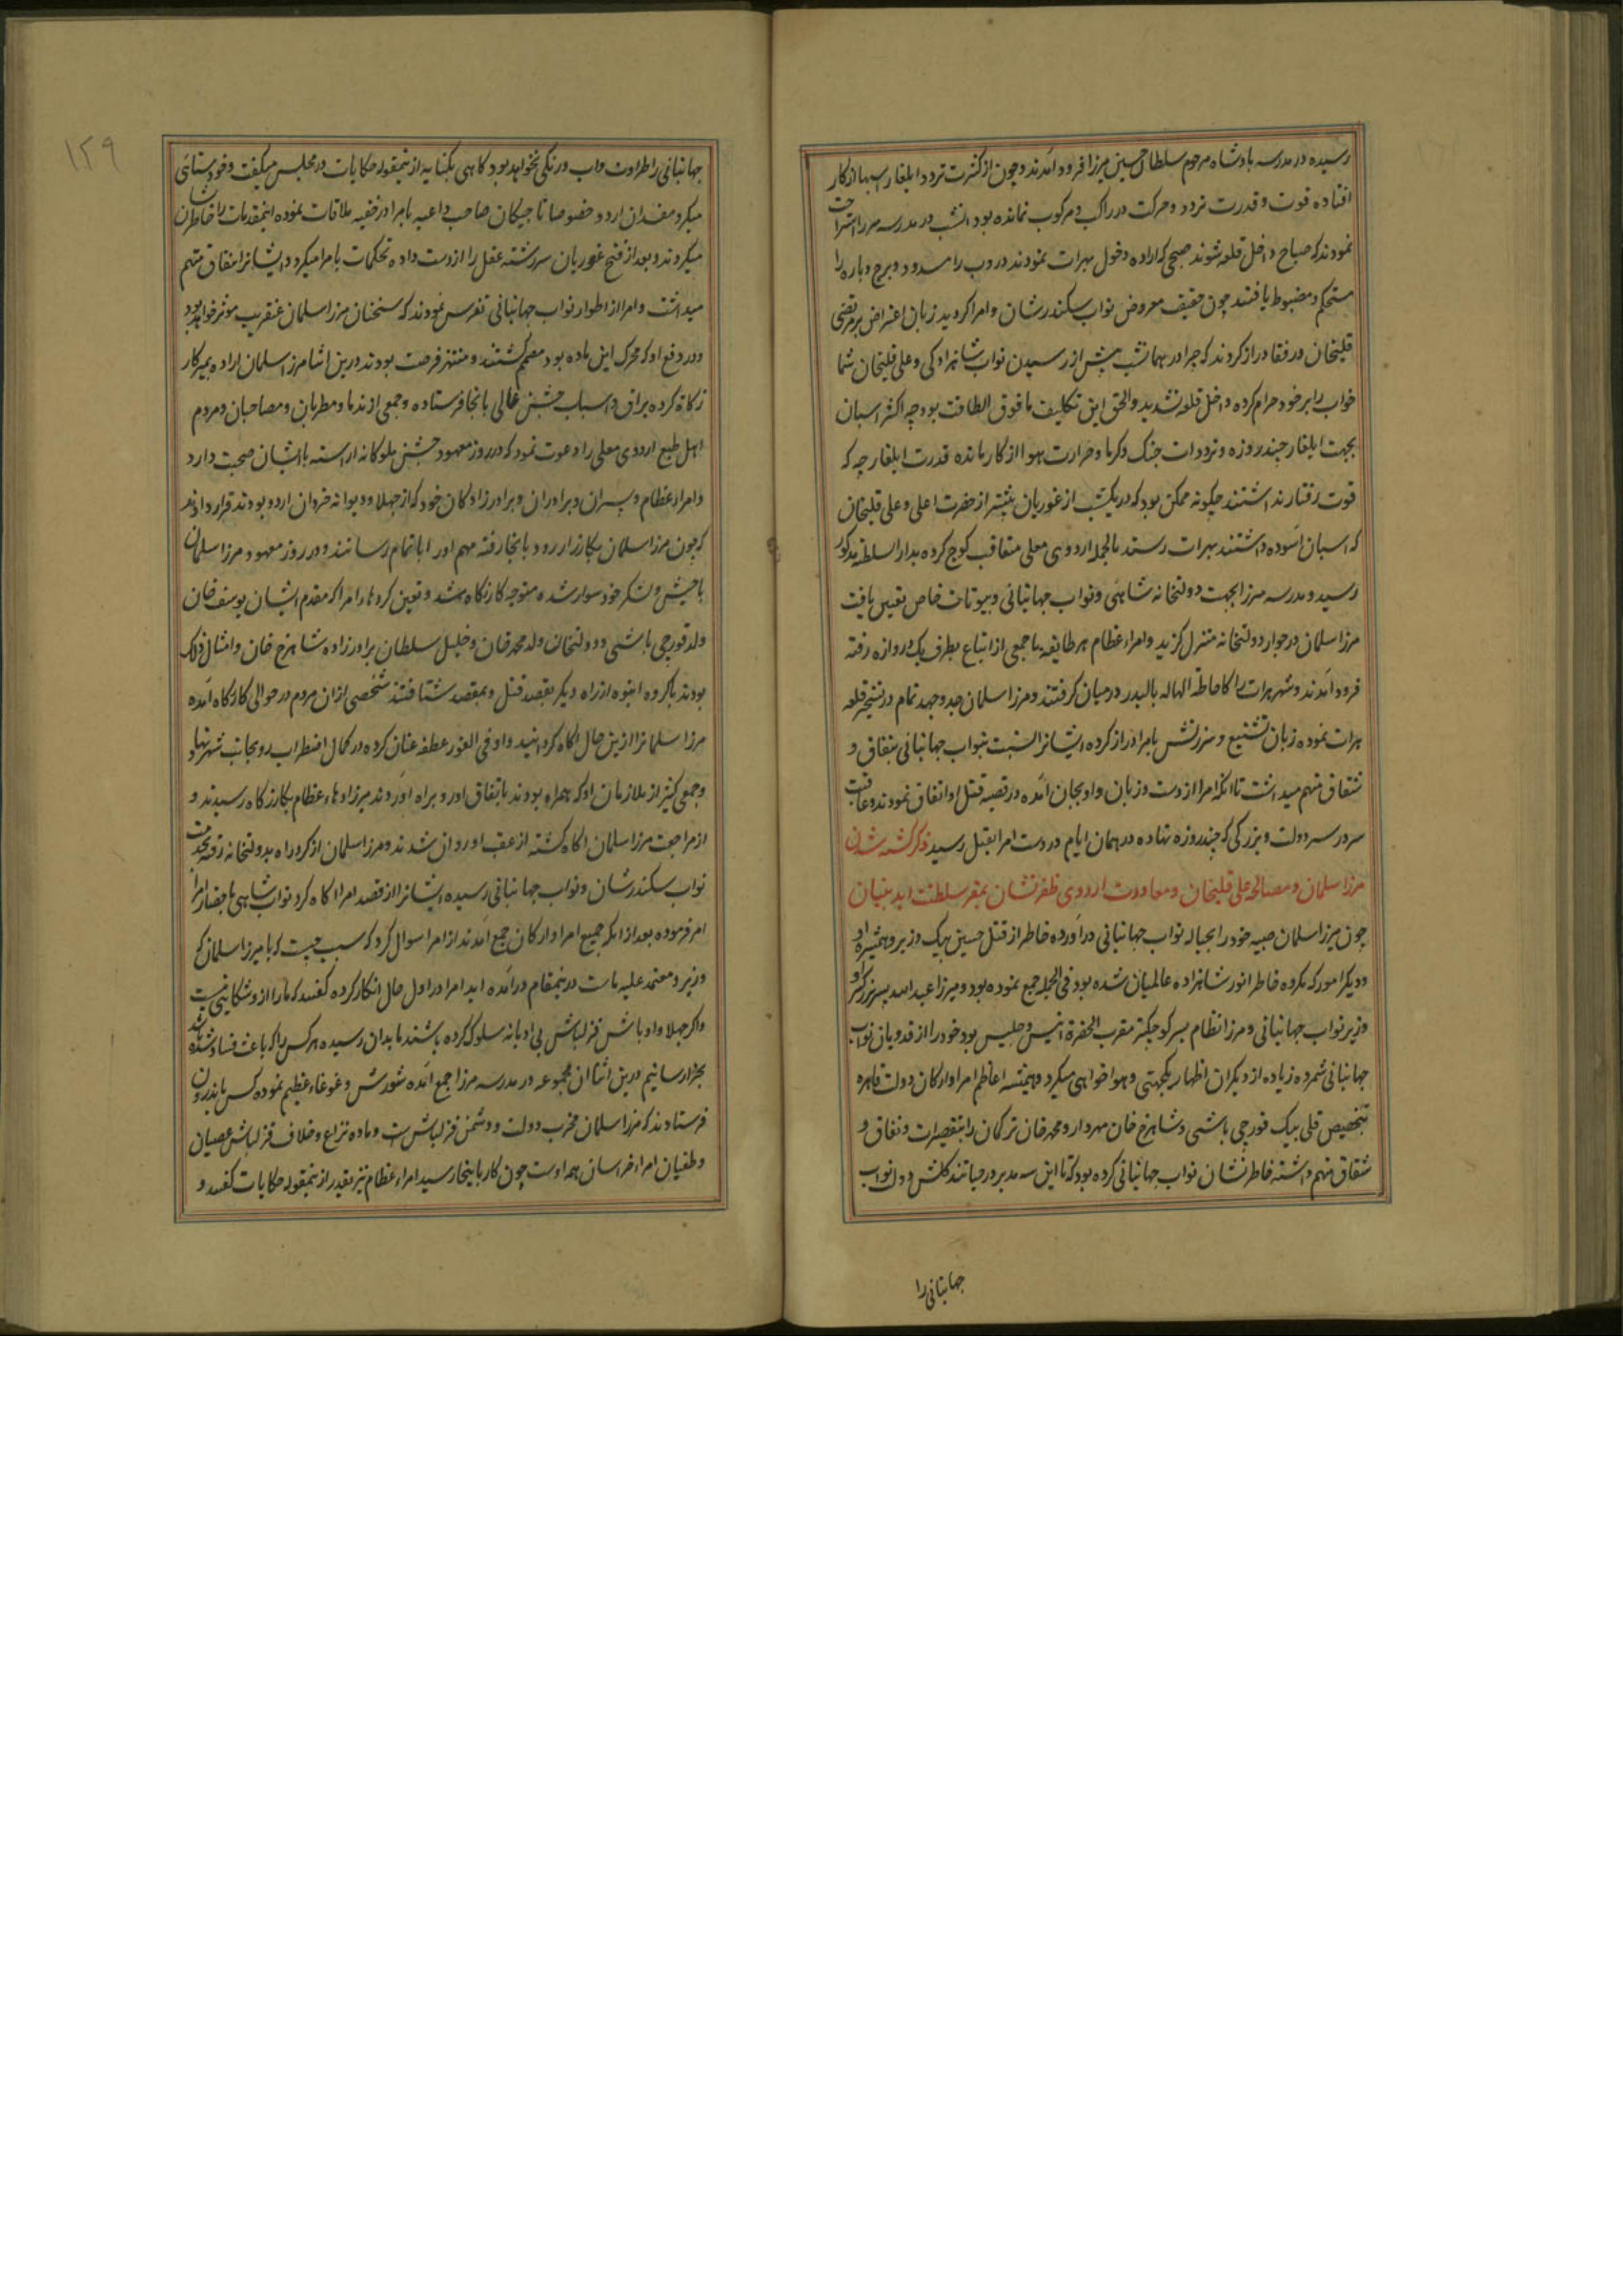 رسیده در مدرسه بادشاه مرحوم سلطان حسین میرزا فرود آمدند و چون از کثرت تردد ایلغار اسبها از کار
افتاده قوت و قدرت تردد و حرکت در راکب و مرکوب نمانده بود انشب در مدرسه مرزا استراحت
نمودند که صباح داخل قلعه شوند صبحی که اراده دخول هرات نمودند دروب را مسدود و برج و باره را
مستحکم و مضبوط یافتند چون حقیقت معروض نواب سکندرشان و امرا کردید زبان اعتراض بر مرتضی
قلیخان و رفقا دراز کردند که چرا در همانشب پیش از رسیدن نواب شاهزادکی و علی قلیخان شما
خواب را بر خود حرام کرده داخل قلعه نشدید والحق این تکلیف مافوق الطاقت بود چه اکثر اسبان
بجهت ایلغار چند روزه و ترددات جنک و کرما و حرارت هوا از کار مانده قدرت ایلغار چه که
قوت رفتار نداشتند چکونه ممکن بود که در یکشب از غوریان پیشتر از حضرت اعلی و علی قلیخان
که اسبان آسوده داشتند بهرات رسند بالجمله اردوی معلی متعاقب کوچ کرده بدار السلطنه مذکور
رسید و مدرسه مرزا بجهت دولتخانه شاهی و نواب جهانبانی و بیوتات خاص تعیین یافت
مرزا سلمان در جوار دولتخانه منزل کزید و امراء عظام هر طایفه با جمعی از اتباع بطرف یک دروازه رفته
فرود آمدند و شهر هرات را کاحاطة الهاله بالبدر در میان کرفتند و مرزا سلمان جد و جهد تمام در تسخیر قلعه
هرات نموده زبان تشنیع و سرزنش بامرا دراز کرده ایشانرا نسبت بنواب جهانبانی بنفاق و
شقاق متهم میداشت تا انکه امرا از دست و زبان او بجان آمده در قصیه قتل او اتفاق نمودند و عاقبت
سر در سر دولت و بزرکی که چند روزه نهاده در همان ایام در دست امرا بقتل رسید ذکر کشته شدن
مرزا سلمان و مصالحه علی قلیخان و معاودت اردوی ظفرنشان بمقر سلطنت ابد بنیان
چون میرزا سلمان صبیه خود را بحباله نواب جهانبانی درآورده خاطر از قتل حسین بیک وزیر و همشیره او
و دیکر امور که مکروه خاطر انور شاهزاده عالمیان شده بود فی الجمله جمع نموده بود و میرزا عبدالله پسر بزرکتر او
وزیر نواب جهانبانی و مرزا نظام پسر کوچکتر مقرب الحضرة انیس و جلیس بود خود را از فدویان نواب
جهانبانی شمرده زیاده از دیکران اظهار یکجهتی و هواخواهی میکرد و همیشه اعاظم امرا و ارکان دولت قاهره
بتخصیص قلی بیک قورچی باشی و شاهرخ خان مهردار و محمد خان ترکمان را بتقصیرات و نفاق و
شقاق متهم داشته خاطرنشان نواب جهانبانی کرده بود که تا این سه مدبر در حیاتند کلشن دولت نواب
جهانبانی را
۱۲۹
جهانبانی را طراوت و آب و رنکی نخواهد بود کاهی بکنایه از ینمقوله حکایات در مجلس میکفت و خودستائی
میکرد مفسدان اردو خصوصا تاجیکان صاحب داعیه بامرا در خفیه ملاقات نموده اینمقدمات را خاطرنشان
میکردند و بعد از فتح غوریان سررشته عقل را از دست داده تحکمات بامرا میکرد و ایشانرا بنفاق متهم
میداشت و امرا از اطوار نواب جهانبانی تفرس نمودند که سخنان مرزا سلمان عنقریب موثر خواهد بود
و در دفع او که محرک این ماده بود مصمم کشتند و منتهز فرصت بودند درین اثنا مرزا سلمان اراده سیر کار
زکاه کرده یراق و اسباب جشن عالی بانجا فرستاده و جمعی از ندما و مطربان و مصاحبان و مردم
اهل طبع اردوی معلی را دعوت نمود که در روز معهود جشن ملوکانه آراسته با ایشان صحبت دارد
و امراء عظام و پسران و برادران و برادرزادکان خود که از جهلا و دیوانه خردان اردو بودند قرار دادند
که چون مرزا سلمان بکارزار رود بانجا رفته مهم او را باتمام رسانند و در روز معهود مرزا سلمان
با جیش و لشکر خود سوار شده متوجه کازرکاه شد و تعین کرده امرا که مقدم ایشان یوسف خان
ولد قورچی باشی و دولتخان ولد محمد خان و خلیل سلطان برادرزاده شاهرخ خان و امثال ذلک
بودند با کروه انبوه از راه دیکر بقصد قتل و بمقصد شتافتند شخصی از ان مردم در حوالی کازرکاه آمده
مرزا سلمانرا ازین حال آکاه کردانید و او فی الفور عطفه عنان کرده در کمال اضطراب رو بجانب شهر نهاد
و جمعی کثیر از ملازمان او که همراه بودند باتفاق او رو براه آوردند میرزادهاء عظام بکازرکاه رسیدند و
از مراجعت مرزا سلمان آکاه کشته از عقب او روان شدند و مرزا سلمان از کرد راه بدولتخانه رفته بخدمت
نواب سکندرشان و نواب جهانبانی رسیده ایشانرا از قصد امرا آکاه کرد نواب شاهی باحضار امرا
امر فرموده بعد از انکه جمیع امرا و ارکان جمع آمدند از امرا سوال کرد که سبب چیست که با میرزا سلمان که
وزیر و معتمد علیه ماست درینمقام درآمده اید امرا در اول حال انکار کرده کفتند که ما را از و شکایتی نیست
و اکر جهلا و اوباش قزلباش بی ادبانه سلوک کرده باشند ما بدان رسیده هر کس را که باعث فساد شده باشد
بجزا رسانیم درین اثنا ان مجموعه در مدرسه مرزا جمع آمده شورش و غوغاء عظیم نموده کس باندرون
فرستادند که مرزا سلمان مخرب دولت و دشمن قزلباش است و ماده نزاع و خلاف قزلباش عصیان
و طغیان امراء خراسان همه اوست چون کار باینجا رسید امراء عظام نیز بقدر از ینمقوله حکایات کفتند و